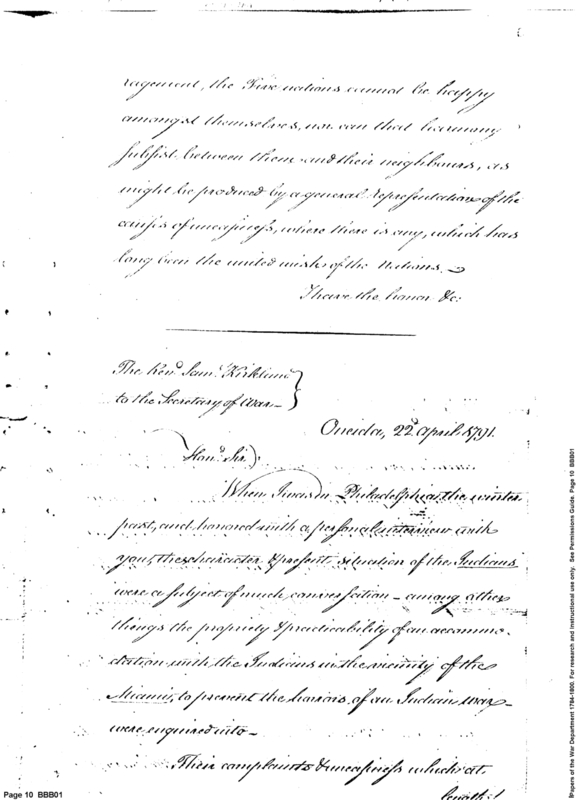 ragement, the Five nations cannot be happy
amongst themselves, nor can that harmony
subsist between them and their neighbours, as
might be produced by a general representation of the
causes of uneasiness, where there is any, which has
long been the united wish of the Nations.
I have the honor &c:
The Revd. Saml. Kirkland
to the Secretary of War—
Oneida, 22d April 1791.
Hond. Sir,
When I was in Philadelphia the winter
past, and honored with a personal interview with
you, the character & present situation of the Indians
were a subject of much conversation — among other
things the propriety & practicability of an accommo-
dation with the Indians in the vicinity of the
Miamis, to prevent the horrors of an Indian war—
were enquired into—
Their complaints & uneasiness which at
length
Page 10 BBB01
Papers of the War Department 1784-1800. For research and instructional use only. See Permissions Guide. Page 10 BBB01